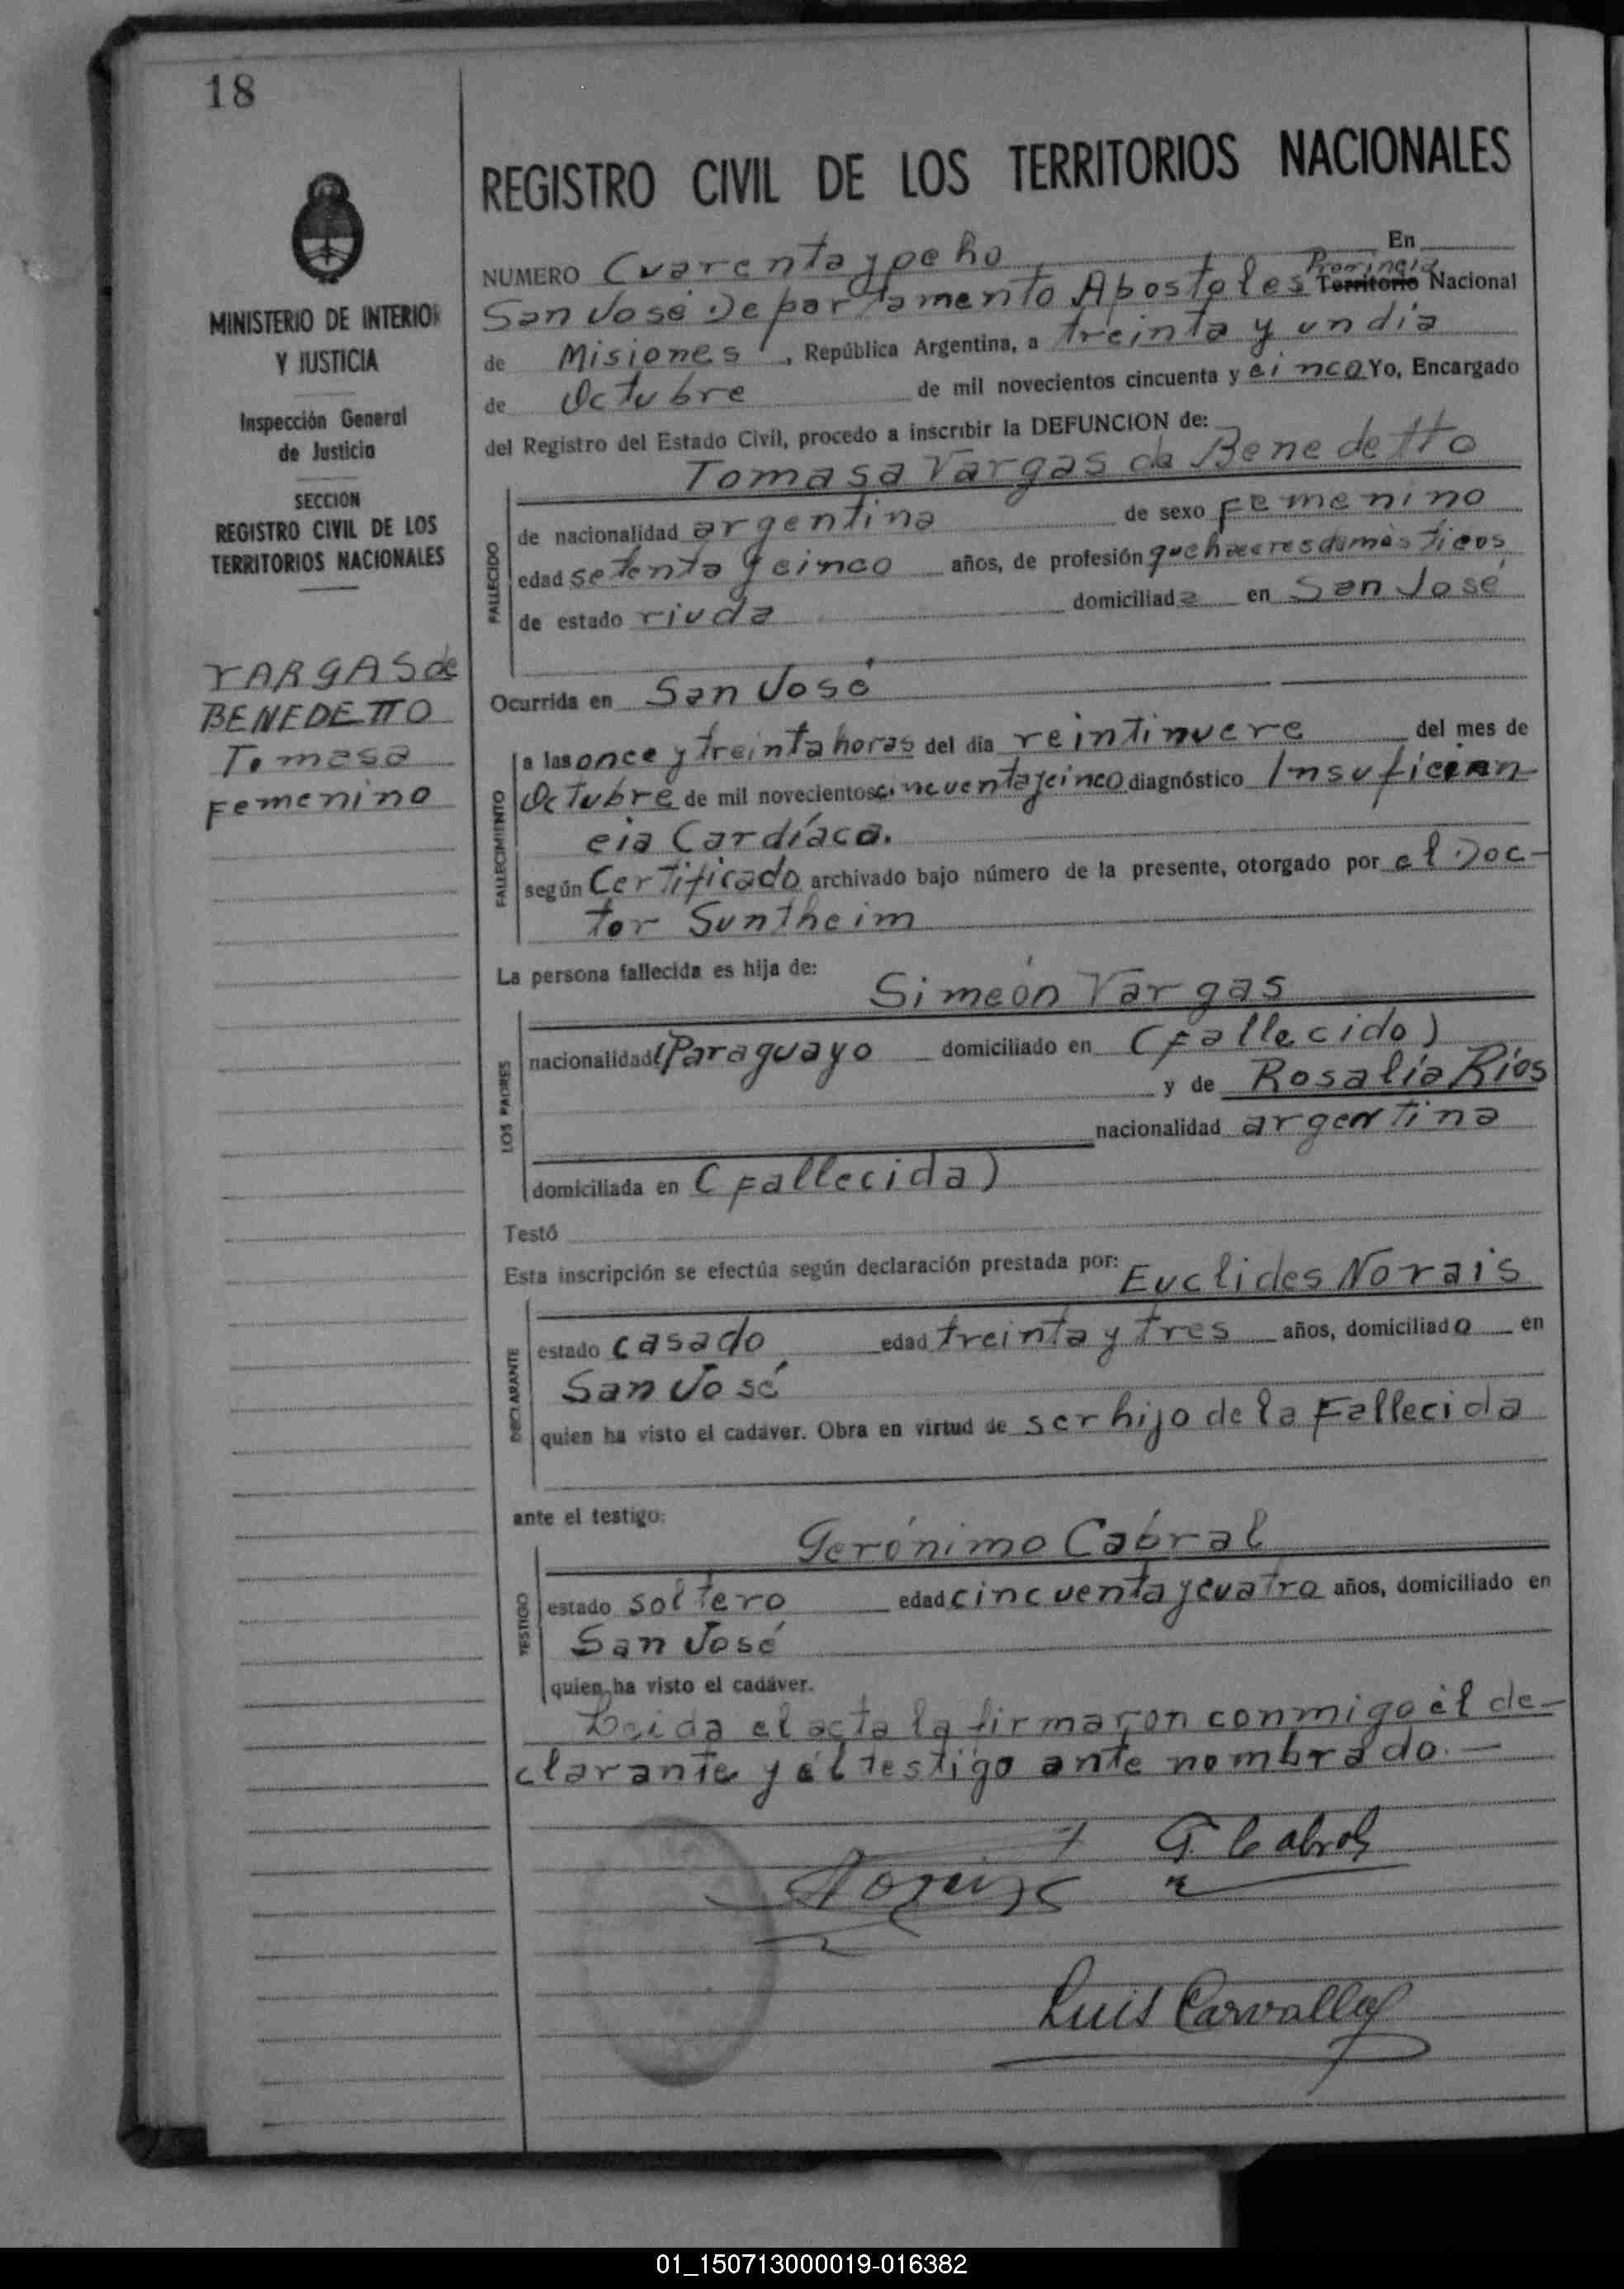 18
MINISTERIO DE INTERIOR
Y JUSTICIA
Inspección General
de Justicia
SECCION
REGISTRO CIVIL DE LOS
TERRITORIOS NACIONALES
VARGAS de
BENEDETTO
Tomasa
Femenino
REGISTRO CIVIL DE LOS TERRITORIOS NACIONALES
NUMERO Cuarenta y ocho En
San José Departamento Apostoles Provincia Territorio Nacional
de Misiones, República Argentina, a treinta y un día
de Octubre de mil novecientos cincuenta y cinco Yo, Encargado
del Registro del Estado Civil, procedo a inscribir la DEFUNCION de:
Tomasa Vargas de Benedetto
FALLECIDO
de nacionalidad argentina de sexo Femenino
edad setenta y cinco años, de profesión quehaceres domésticos
de estado viuda domiciliada en San José
Ocurrida en San José
FALLECIMIENTO
a las once y treinta horas del día veintinueve del mes de
Octubre de mil novecientos cincuenta y cinco diagnóstico Insuficien
cia Cardíaca.
según Certificado archivado bajo número de la presente, otorgado por el Doc-
tor Suntheim
La persona fallecida es hija de:
Simeón Vargas
LOS PADRES
nacionalidad (Paraguayo domiciliado en (Fallecido)
y de Rosalía Ríos
nacionalidad argentina
domiciliada en (Fallecida)
Testó
Esta inscripción se efectúa según declaración prestada por:
Euclides Norais
DECLARANTE
estado casado edad treinta y tres años, domiciliado en
San José
quien ha visto el cadáver. Obra en virtud de ser hijo de la Fallecida
ante el testigo:
Gerónimo Cabral
TESTIGO
estado soltero edad cincuenta y cuatro años, domiciliado en
San José
quien ha visto el cadáver.
Leida el acta la firmaron conmigo él de-
clarante y él testigo ante nombrado.—
G. Cabral
Luis Carvallo
01_150713000019-016382